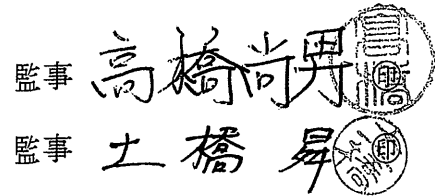 監事 高橋尚男 ㊞
監事 土橋 昇 ㊞